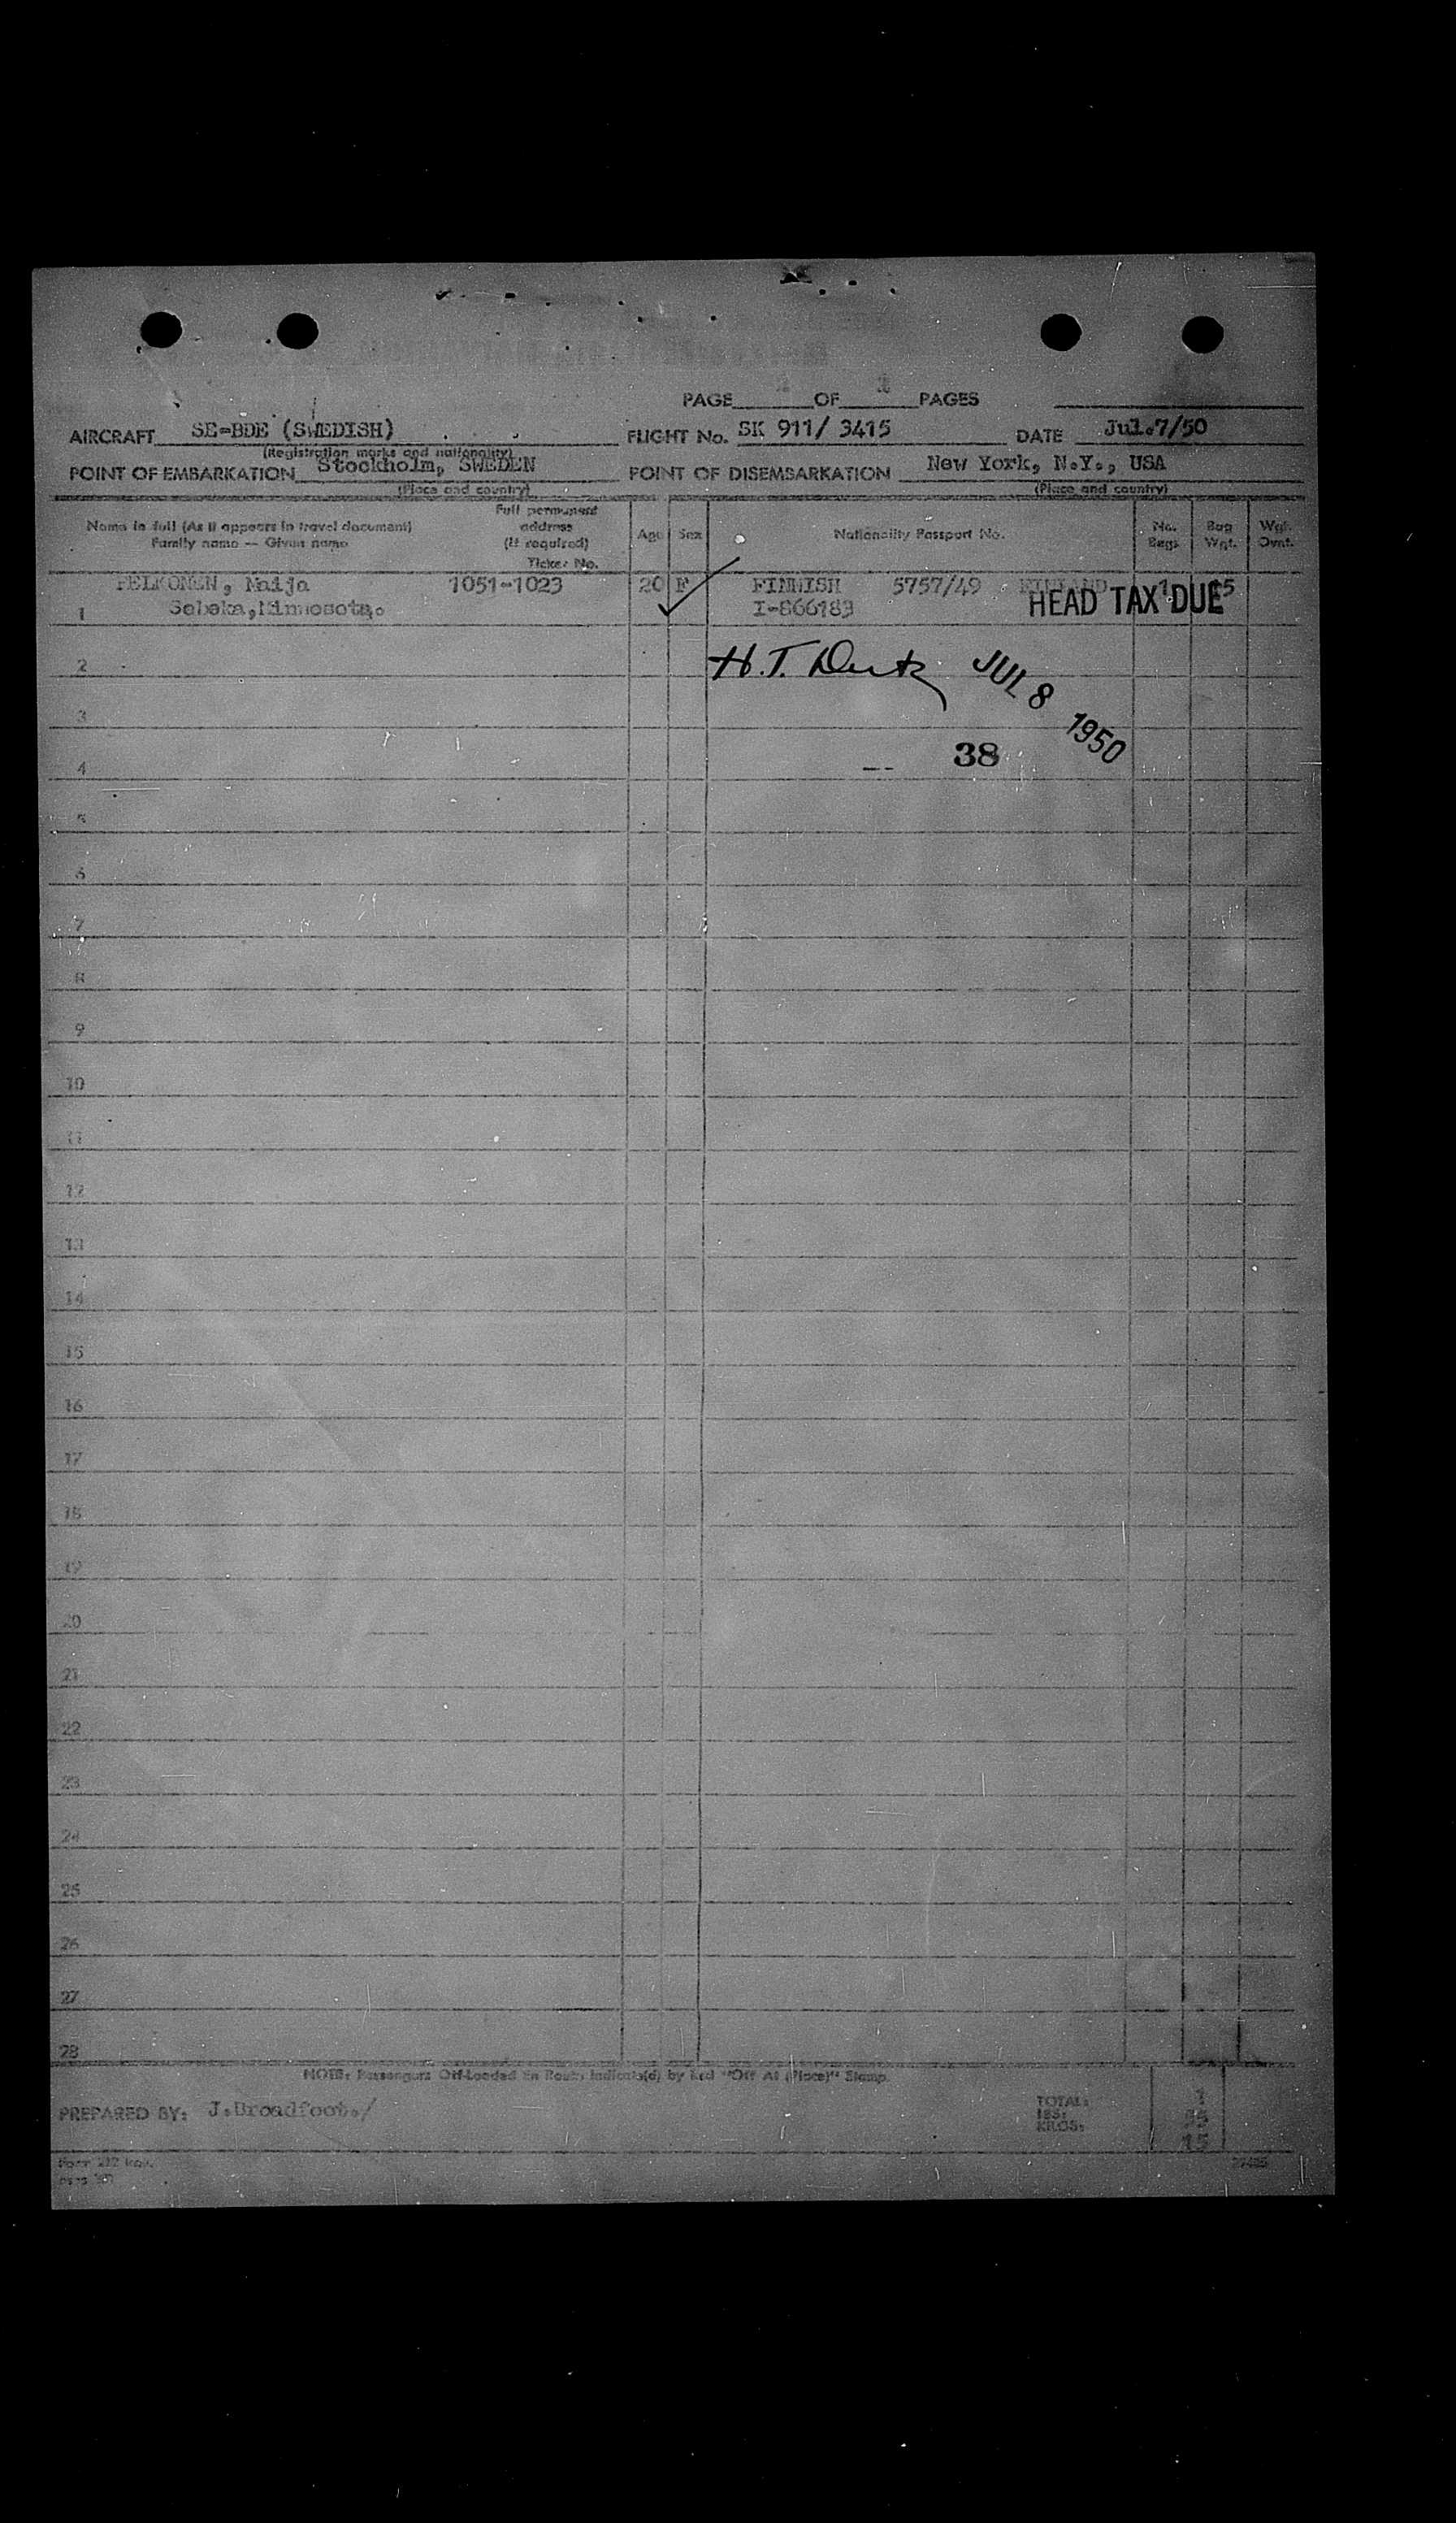 PAGE OF 1 PAGES
AIRCRAFT SE-BDE (SWEDISH) FLIGHT No. SK 911/ 3415 DATE Jul.7/50
(Registration marks and nationality)
POINT OF EMBARKATION Stockholm, SWEDEN POINT OF DISEMBARKATION New York, N.Y., USA
(Place and country) (Place and country)
Name in full (As it appears in travel document) Full permanent address (if required) Age Sex Nationality Passport No. No. Bag Wgt.
Family name — Given name Ticket No. Bags Wgt. Ovwt.
PELKONEN, Maija 1051-1023 20 F FINNISH 5757/49 FINLAND 1 15
1 Sebeka, Minnesota. I-866183 HEAD TAX DUE
2 H.T. JUL 8 1950
3
4 38
5
6
7
8
9
10
11
12
13
14
15
16
17
18
19
20
21
22
23
24
25
26
27
28
NOTE: Passengers Off-Loaded En Route Indicate(d) by Red "Off At (Place)" Stamp.
PREPARED BY: J.Broadfoot./ TOTAL: 1
LBS:
KILOS: 15